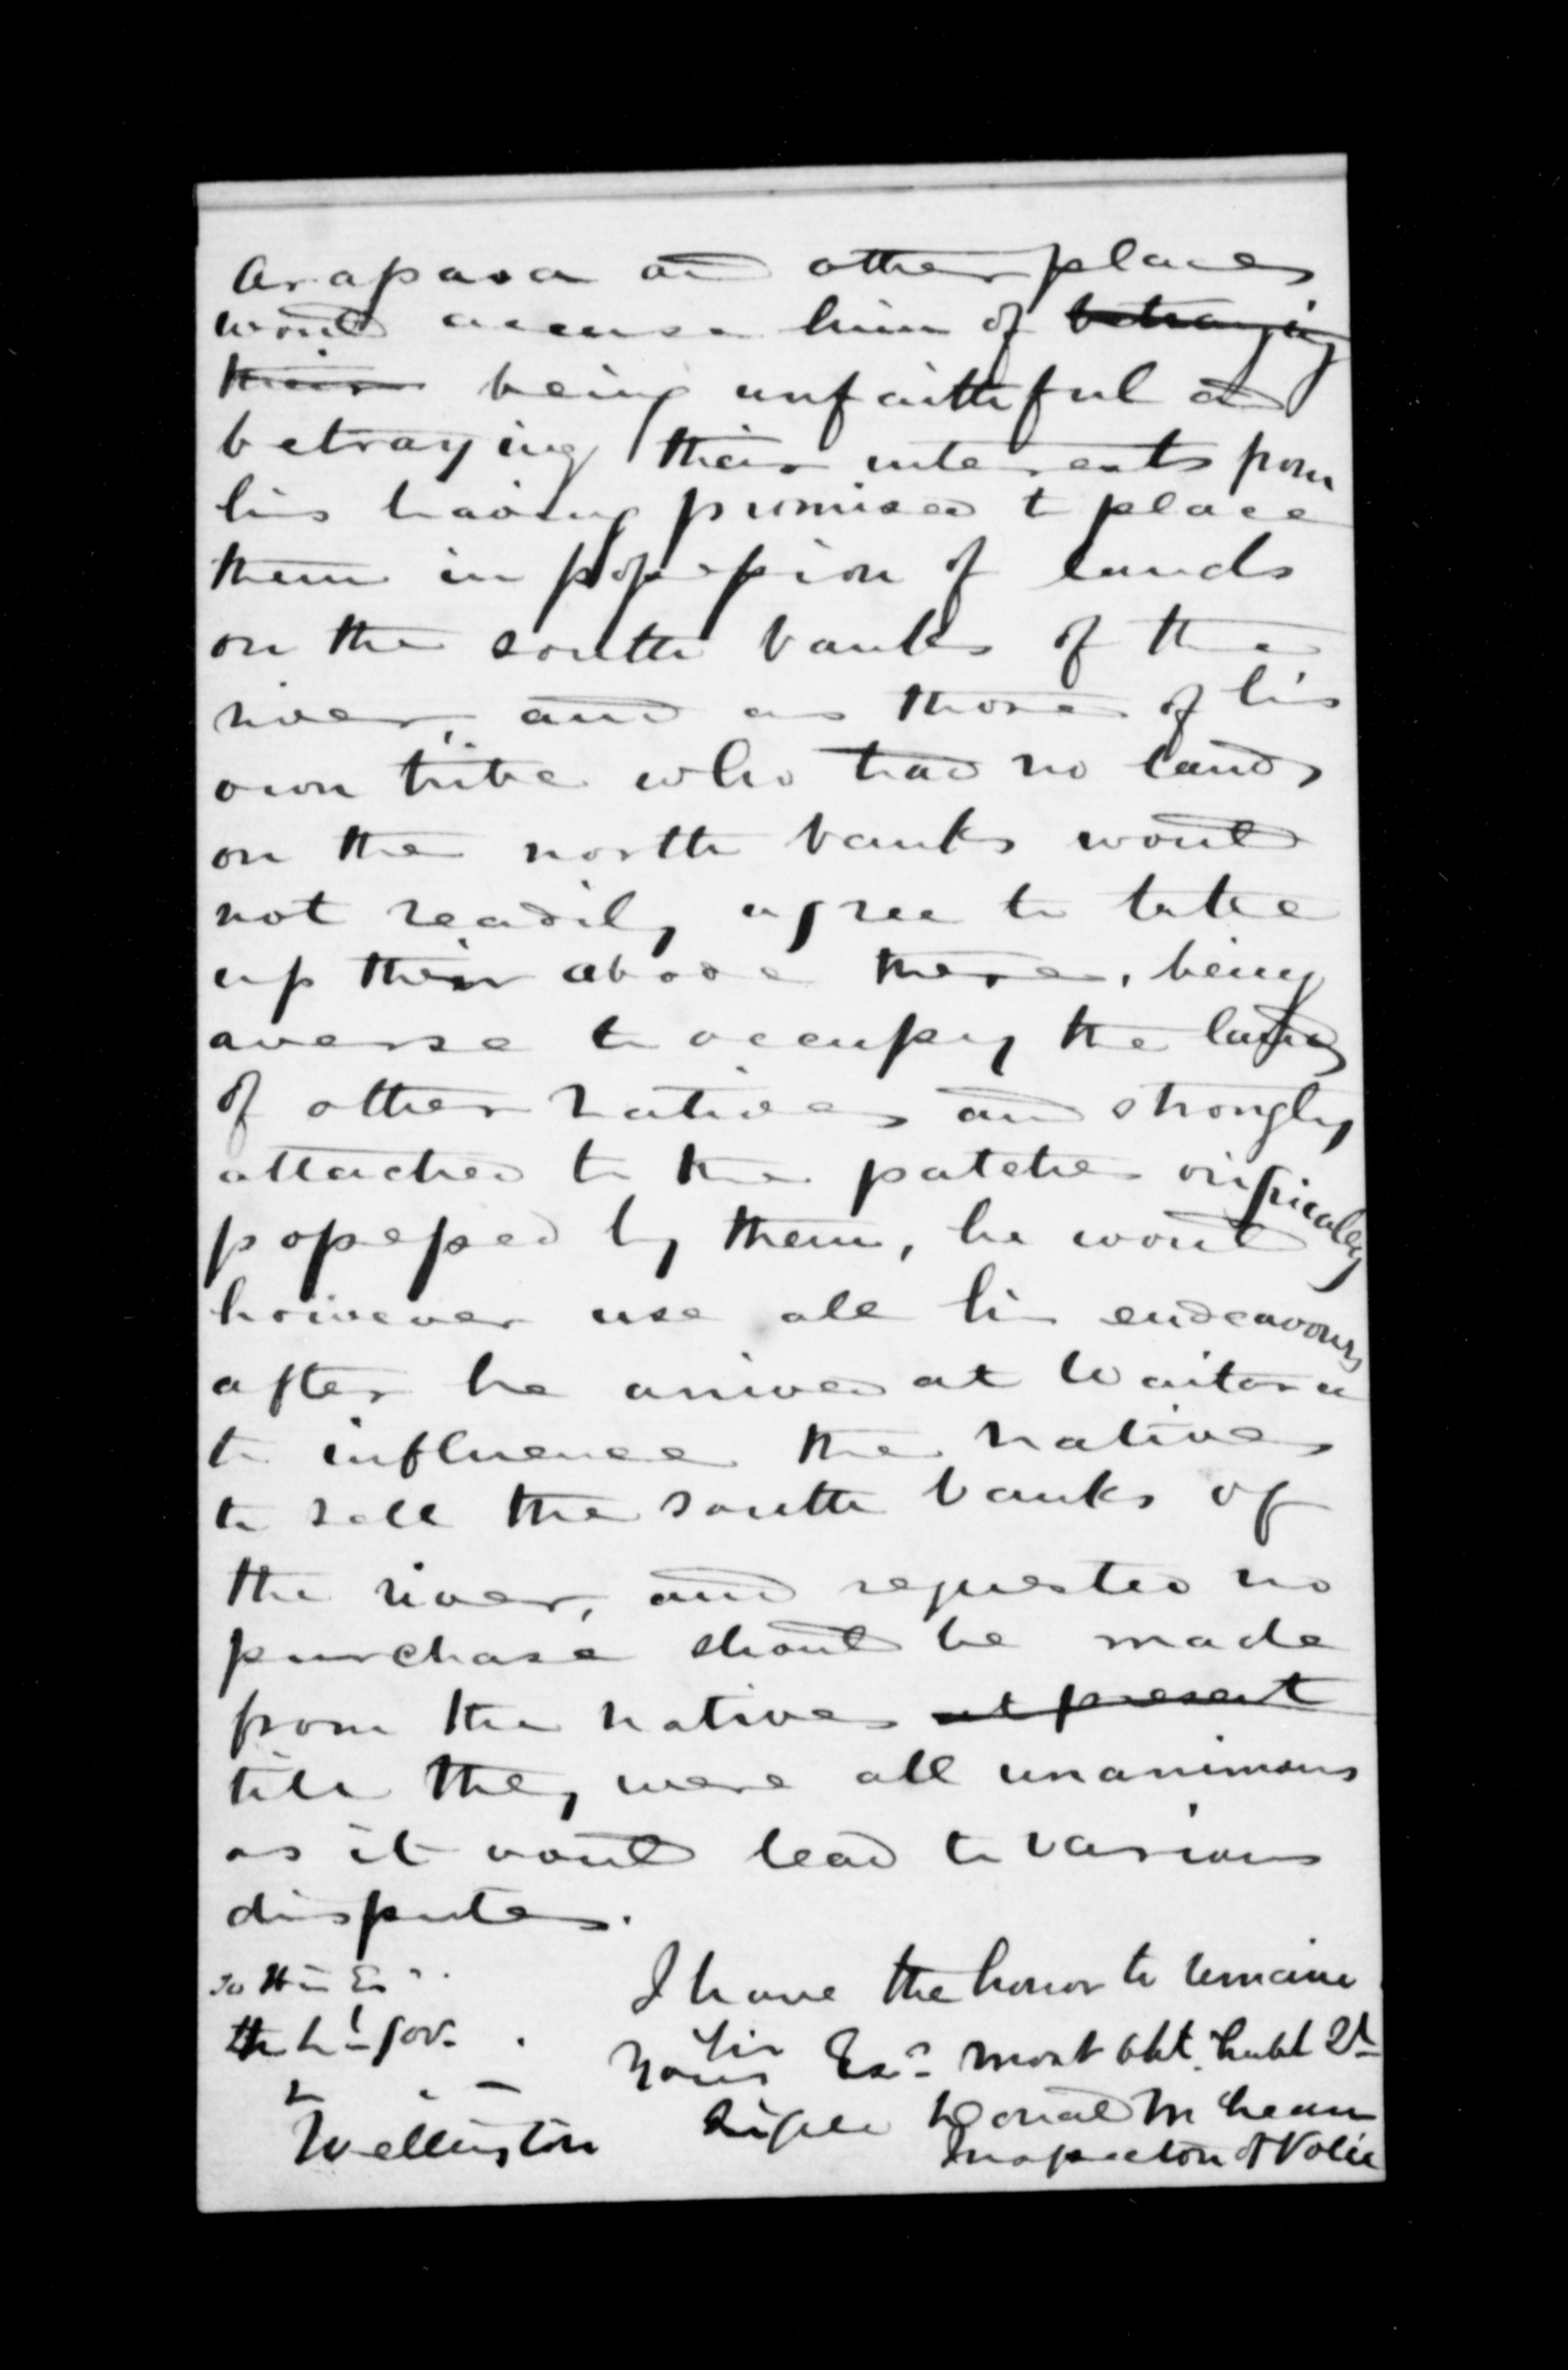 Arapaoa and other places
would accuse him of betraying
their being unfaithful and
betraying their interests from
his having promised to place
them in possession of lands
on the south banks of the
river, and as those of his
own tribe who had no lands
on the north banks would
not readily agree to take
up their abode there, being
averse to occupy the lands
of other natives and strongly
attached to the patches originaly
possessed by them, he would
however use all his endeavours
after he arived at Waitara
to influence the natives
to sell the south banks of
the river, and requested no
purchase should be made
from the natives at present
till they were all unanimous
as it would lead to various
disputes.
I have the honor to remain
To His Ex
the Lt Gov.
Sir
Your Exs most obt hubl St
Wellington
Signed Donald McLean
Inspector of Police